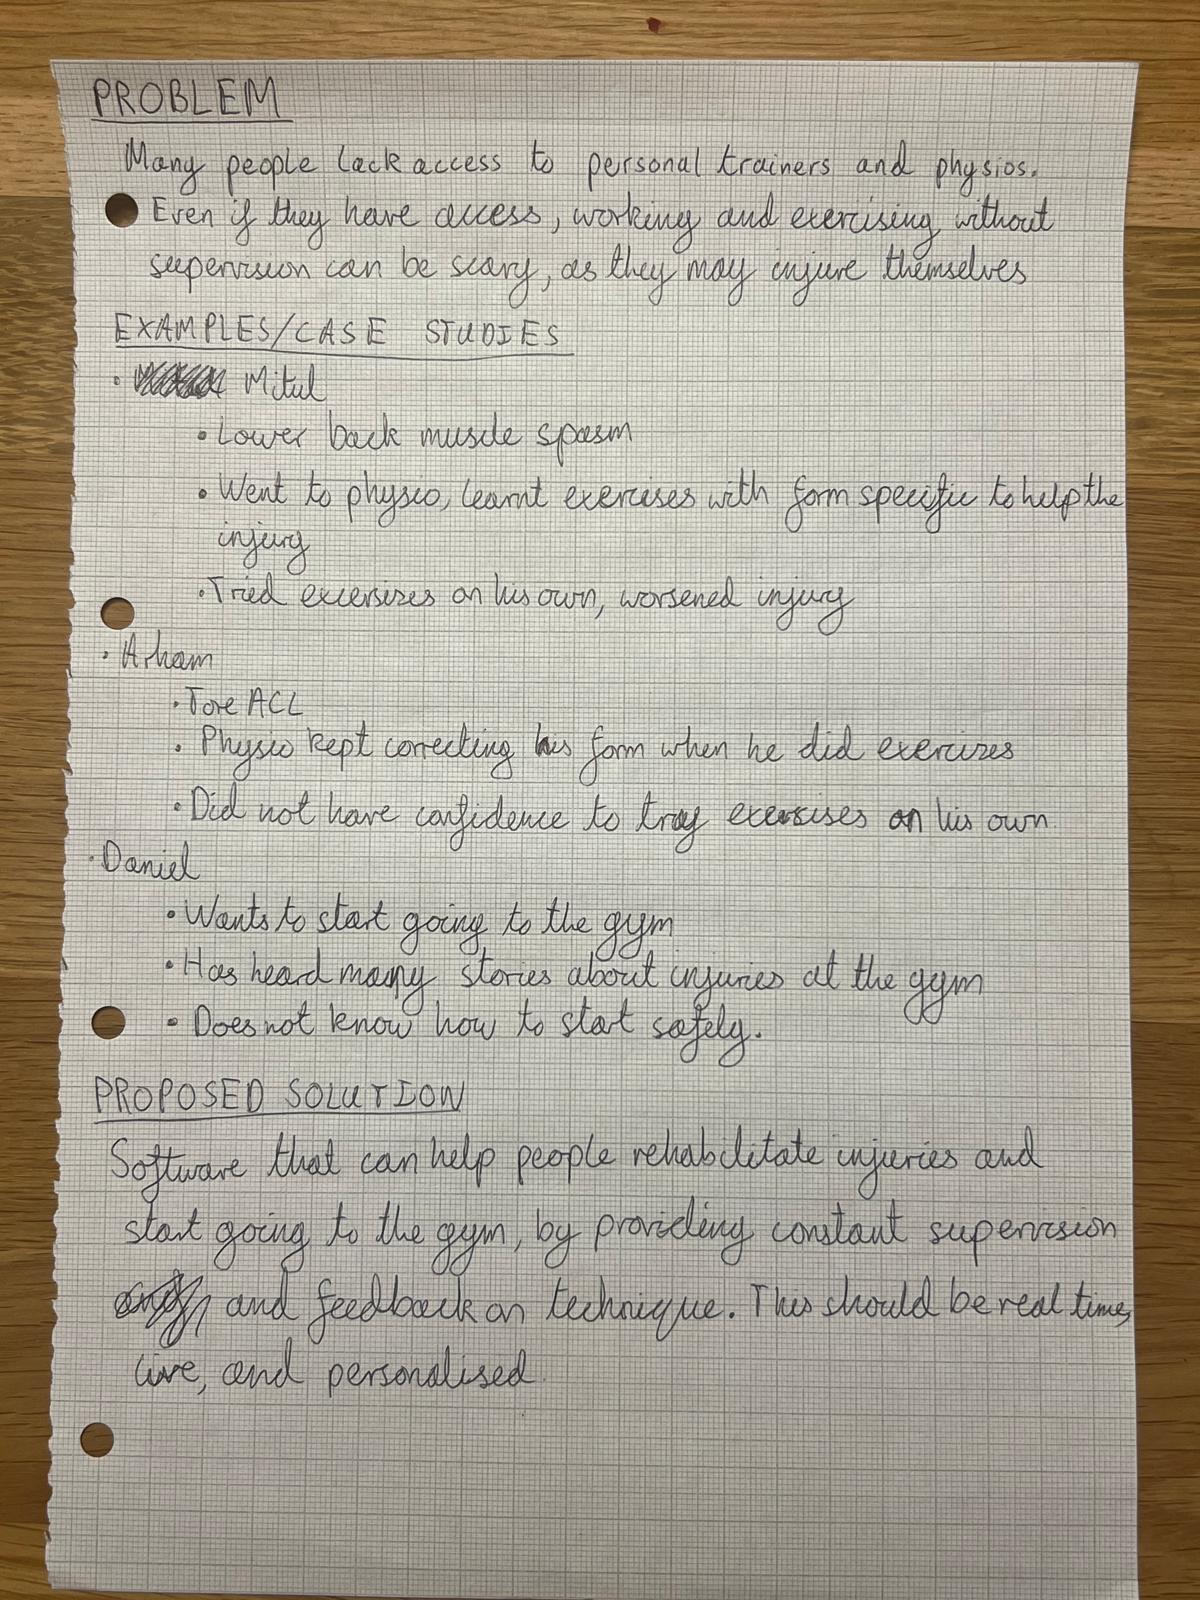 PROBLEM
Many people lack access to personal trainers and physios.
Even if they have access, working and exercising without
supervision can be scary, as they may injure themselves
EXAMPLES/CASE STUDIES
• Mitul
• Lower back muscle spasm
• Went to physio, learnt exercises with form specific to help the
injury
• Tried excersizes on his own, worsened injury
• Arham
• Tore ACL
• Physio kept correcting his form when he did exercizes
• Did not have confidence to tray exercises on his own.
• Daniel
• Wants to start going to the gym
• Has head many stories about injuries at the gym
• Does not know how to start safely.
PROPOSED SOLUTION
Software that can help people rehabilitate injuries and
start going to the gym, by providing constant supervision
and feedback on technique. This should be real time,
live, and personalised.